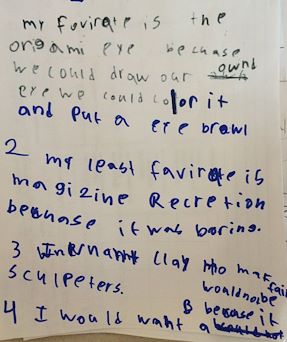 my fovirate is the
origami eye because
we could draw our ownd
eye we could color it
and put a eye brawl
2 my least favirate is
magizine Recretion
because it was boring.
3 clay
sculpeters.
4 I would want a B because it
would no be
fair